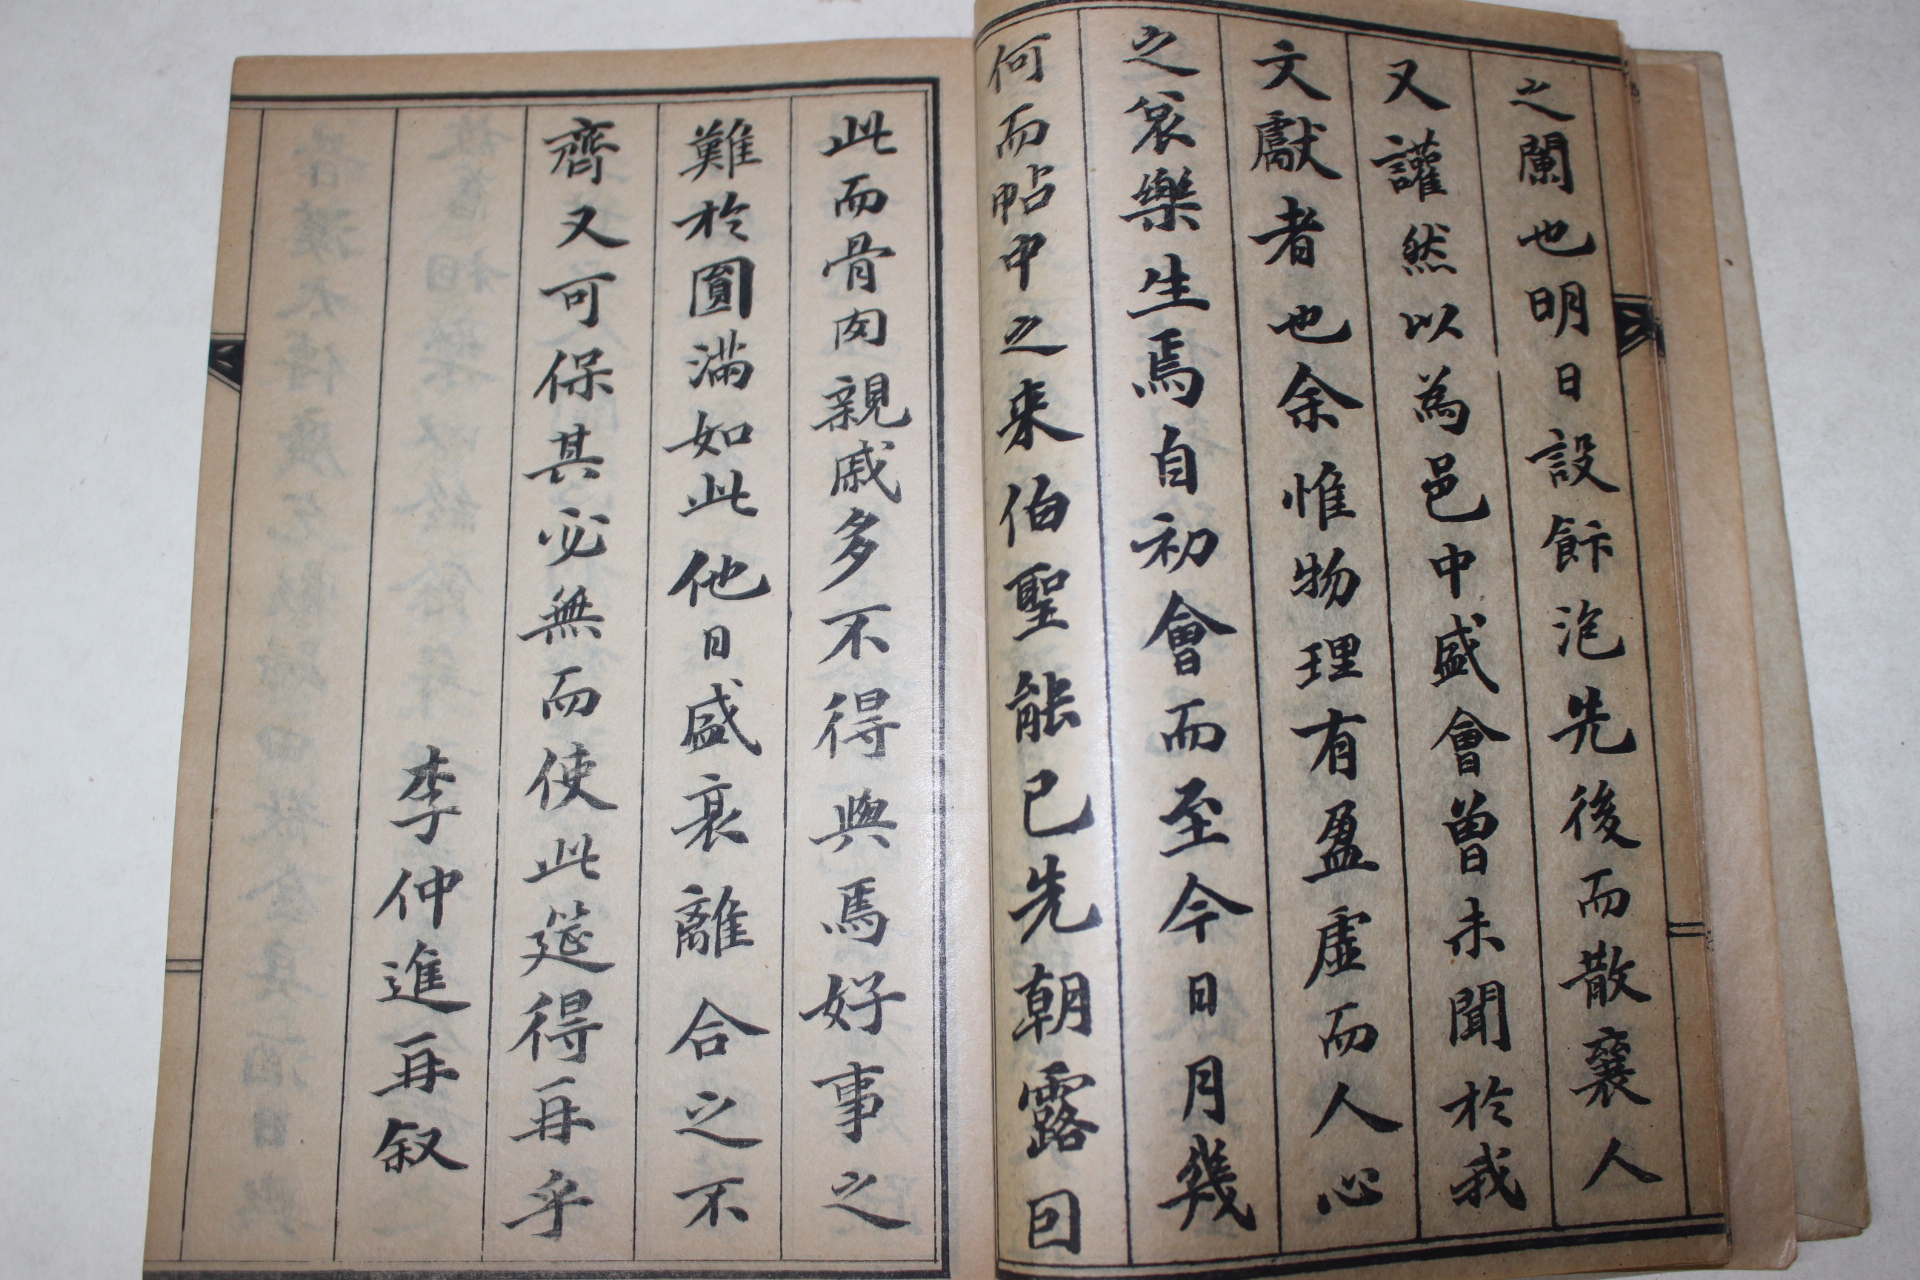 之闌也明日設餠泡先後而散襄人
又讙然以為邑中盛會曾未聞於我
文獻者也余惟物理有盈虛而人心
之哀樂生焉自初會而至今日月幾
何而帖中之来伯聖能已先朝露曰
此而骨肉親戚多不得與焉好事之
難於圓滿如此他日盛衰離合之不
齊又可保其必無而使此筵得再乎
李仲進再叙